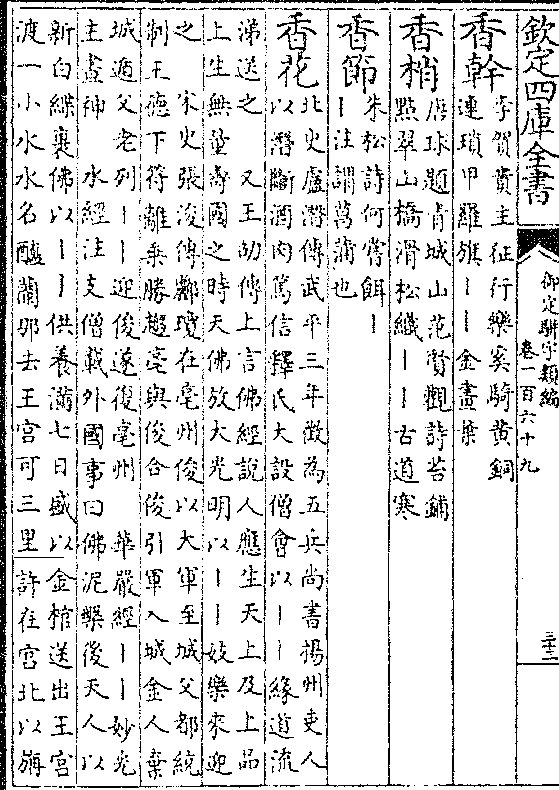 欽定四庫全書
御定駢字類編
卷一百六十九
三十三
香幹
李賀貴主征行樂奚騎黄銅
連瑣甲羅旗丨丨金畫葉
香梢
唐球題青城山范賢觀詩苔鋪
點翠山橋滑松織丨丨古道寒
香節
朱松詩何嘗餌丨
丨注謂菖蒲也
香花
北史盧潛傳武平三年徵為五兵尚書揚州吏人
以潛斷酒肉篤信釋氏大設僧會以丨丨緣道流
涕送之 又王劭傳上言佛經說人應生天上及上品
上生無量壽國之時天佛放大光明以丨丨妓樂來迎
之 宋史張浚傳酈瓊在亳州俊以大軍至城父都統
制王德下符離乘勝趨亳與俊合俊引軍入城金人棄
城遁父老列丨丨迎俊遂復亳州 華嚴經丨丨妙光
主晝神 水經注支僧載外國事曰佛泥樂後天人以
新白緤裹佛以丨丨供養滿七日盛以金棺送出王宮
渡一小水水名醯蘭那去王宮可三里許在宮北以旃